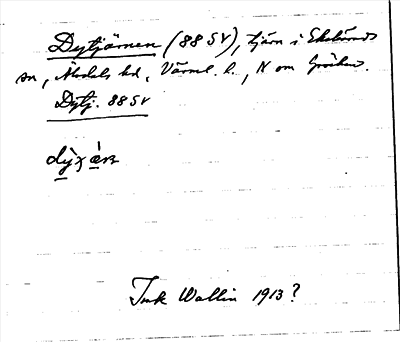 Dytjärnen (88 SV), tjärn i Ekshärads
sn, Älvdals hd, Värml. l., N om
Dytj. 88 SV
Ink Wallin 1913?